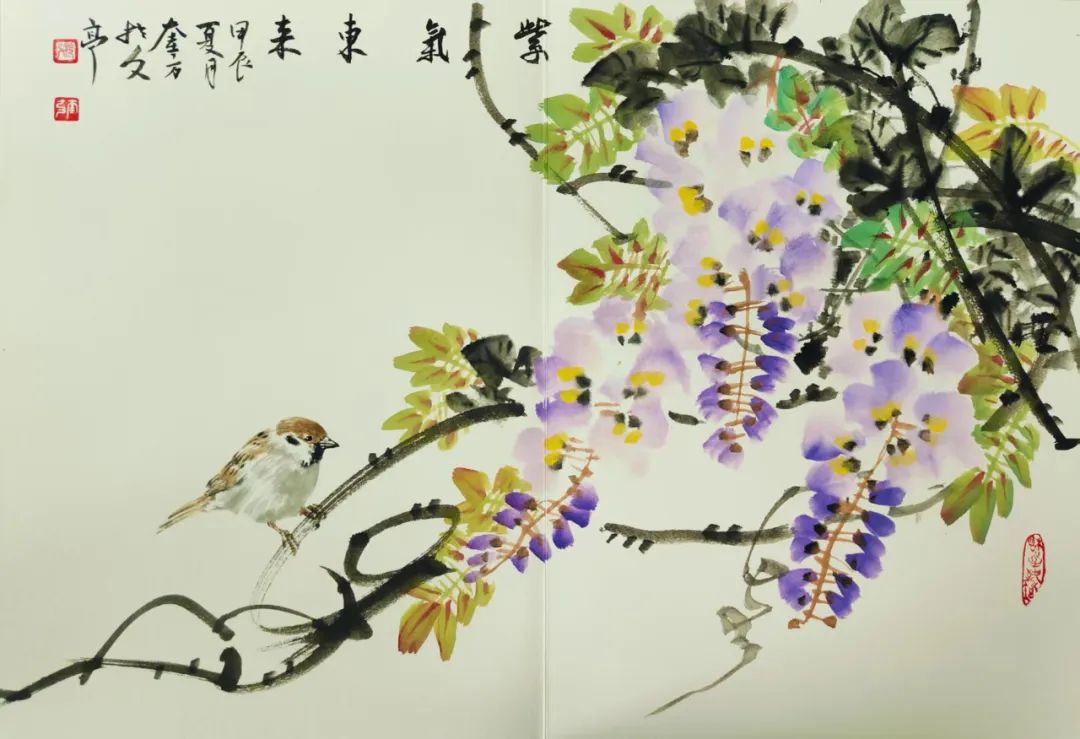 紫氣東来
甲辰
夏月
奎石
於文
亭